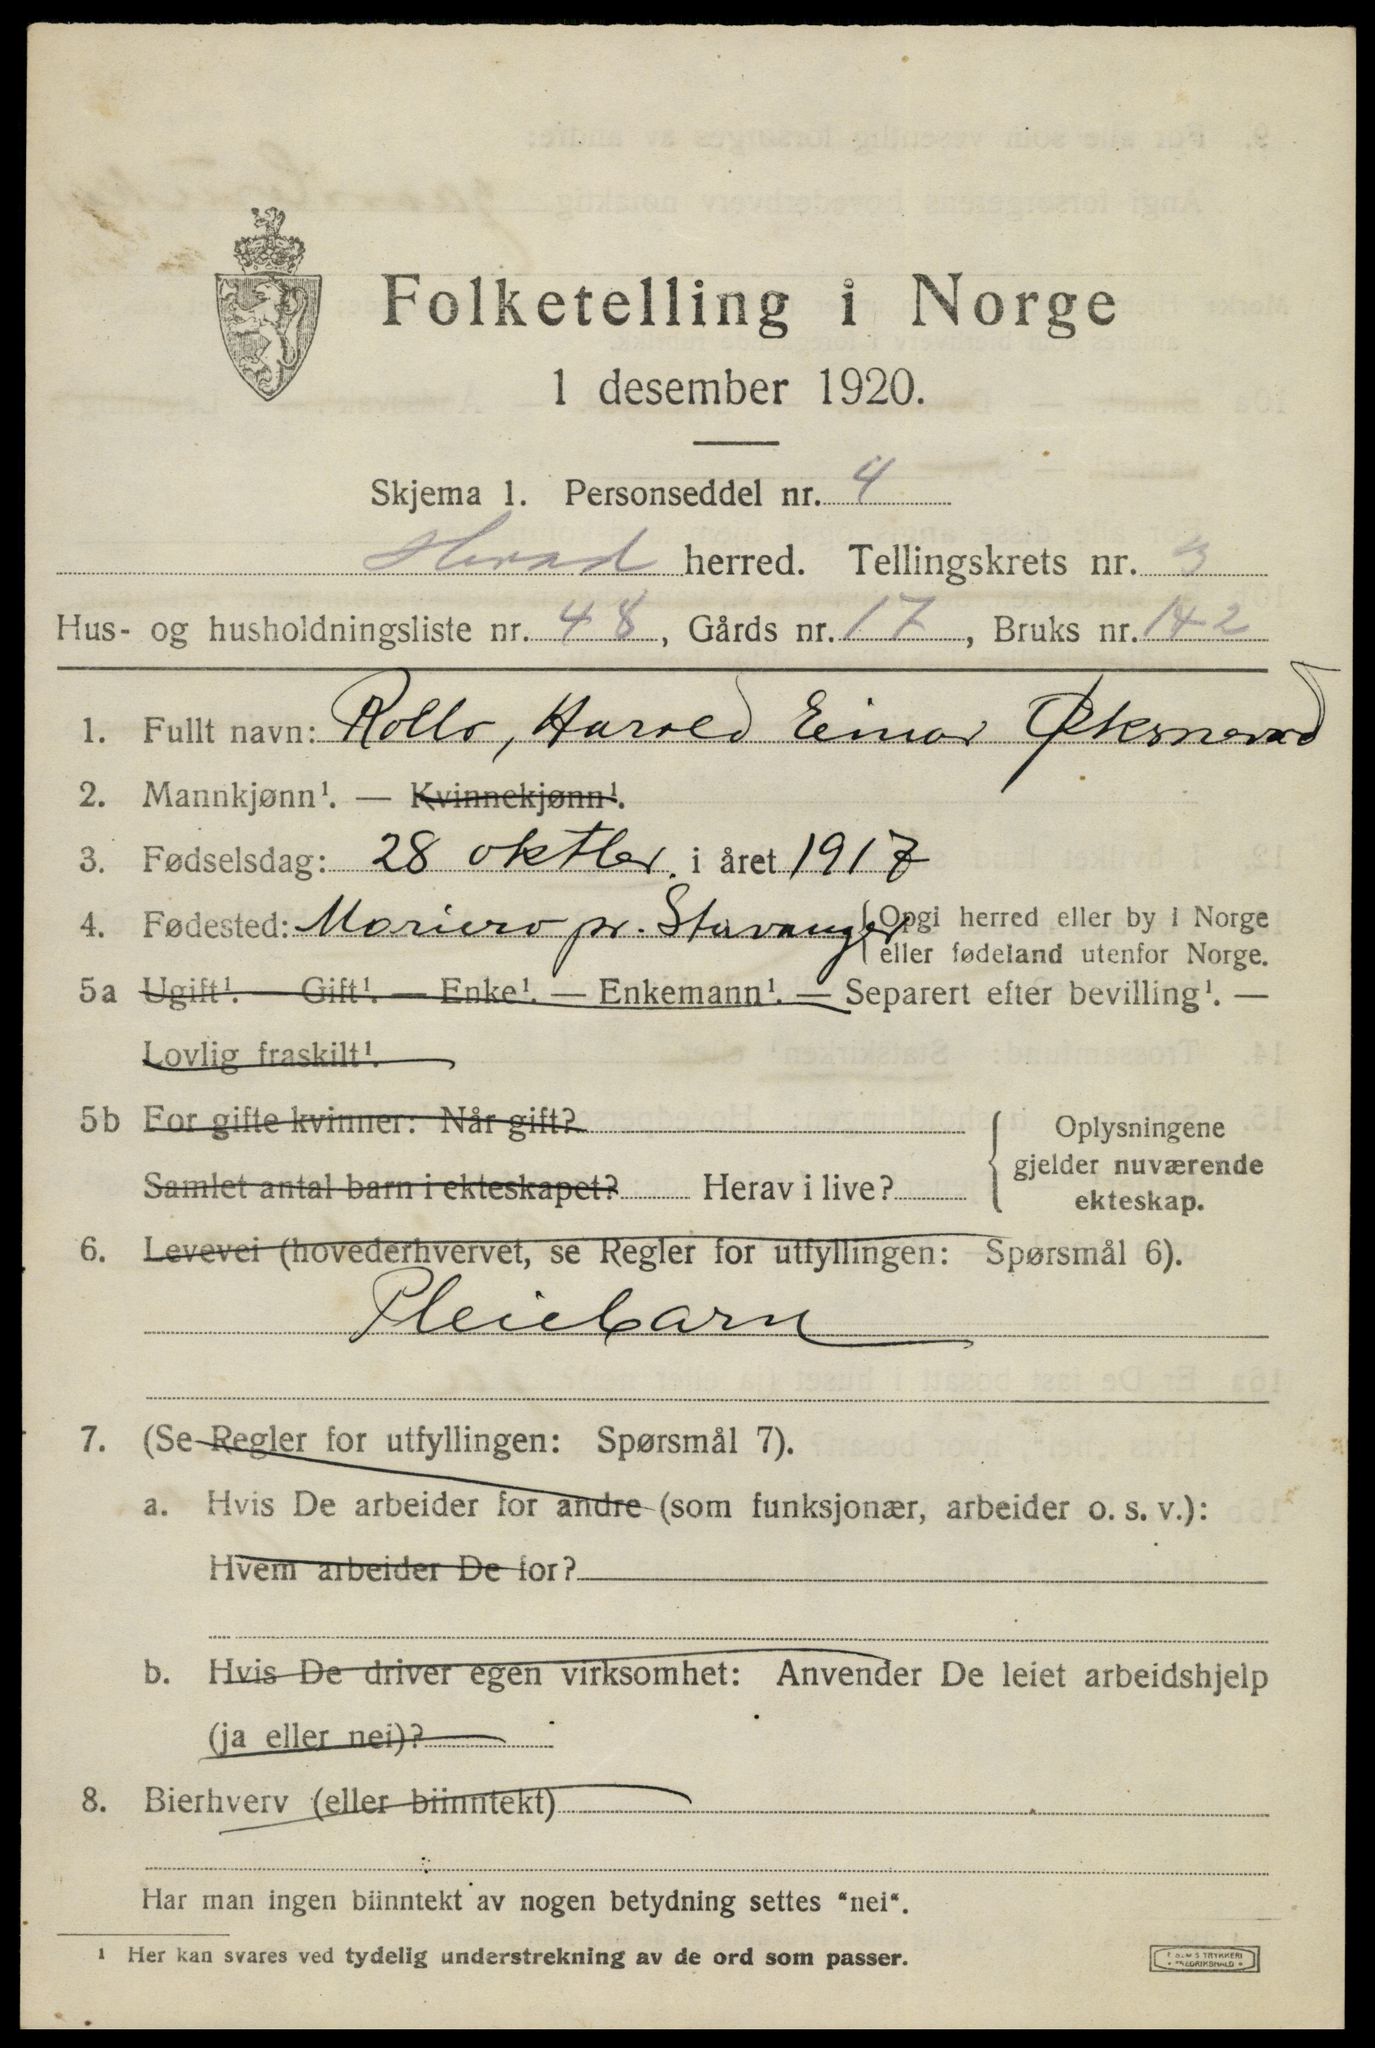 Folketelling i Norge
1 desember 1920.
Skjema 1. Personseddel nr. 4
Herad herred. Tellingskrets nr. 3
Hus- og husholdningsliste nr. 48, Gårds nr. 17, Bruks nr. 142
1. Fullt navn: Rollo, Harold Einar Øksnevad
2. Mannkjønn¹. — Kvinnekjønn¹.
3. Fødselsdag: 28 oktber. i året 1917
4. Fødested: Mariero pr. Stavanger (Opgi herred eller by i Norge
eller fødeland utenfor Norge.
5a Ugift¹. — Gift¹. — Enke¹. — Enkemann¹. — Separert efter bevilling¹. —
Lovlig fraskilt¹.
5b For gifte kvinner: Når gift?
Samlet antal barn i ekteskapet? Herav i live?
Oplysningene
gjelder nuværende
ekteskap.
6. Levevei (hovederhvervet, se Regler for utfyllingen: Spørsmål 6).
Pleiebarn
7. (Se Regler for utfyllingen: Spørsmål 7).
a. Hvis De arbeider for andre (som funksjonær, arbeider o. s. v.):
Hvem arbeider De for?
b. Hvis De driver egen virksomhet: Anvender De leiet arbeidshjelp
(ja eller nei)?
8. Bierhverv (eller biinntekt)
Har man ingen biinntekt av nogen betydning settes "nei".
¹ Her kan svares ved tydelig understrekning av de ord som passer.